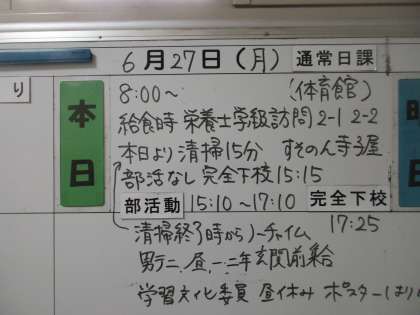 6月27日(月) 通常日課
り
本日
8:00～ (体育館)
給食時 栄養士学級訪問 2-1 2-2
本日より 清掃15分 すそのん寺子屋
部活なし 完全下校 15:15
部活動 15:10～17:10 完全下校
17:25
清掃終了時から ノーチャイム
昼、一、二年玄関前
学習文化委員 昼休み ポスターはり